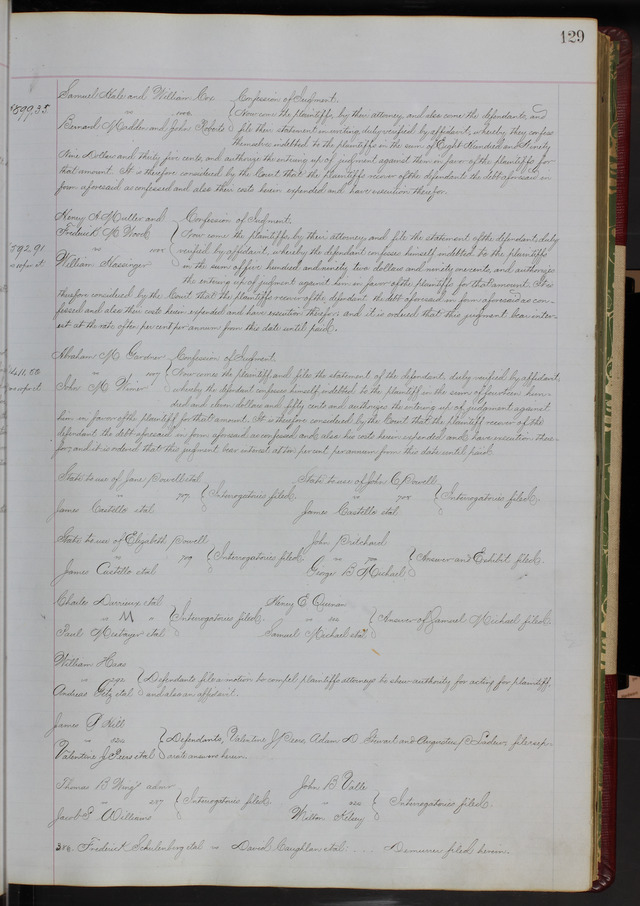 129
Samuel Hale and William Cox Confession of Judgment.
$899.35 vs Now come the plaintiffs, by their attorney, and also come the defendants, and
Bernard Madden and John Roberts file their statement in writing, duly verified by affidavit, whereby they confess
themselves indebted to the plaintiffs in the sum of Eight Hundred and Ninety
Nine Dollars and thirty five cents, and authorize the entering up of judgment against them in favor of the plaintiffs for
that amount. It is therefore considered by the Court that the plaintiffs recover of the defendants the debt aforesaid in
form aforesaid as confessed and also their costs herein expended and have execution therefor.
Henry A Muller and Confession of Judgment.
Frederick M. Now come the plaintiffs, by their attorney, and file the statement of the defendant, duly
592.91 vs verified by affidavit, whereby the defendant confesses himself indebted to the plaintiffs
10 per ct William Hassinger in the sum of five hundred and ninety two dollars and ninety one cents, and authorizes
the entering up of judgment against him in favor of the plaintiffs for that amount. It is
therefore considered by the Court that the plaintiffs recover of the defendant the debt aforesaid in form aforesaid as con-
fessed and also their costs herein expended and have execution therefor. and it is ordered that this judgment bear inter-
est at the rate of ten per cent per annum from this date until paid.
Abraham M. Gardner Confession of Judgment.
1411.50 vs Now comes the plaintiff and files the statement of the defendant duly verified by affidavit,
10 per ct John M. Wimer whereby the defendant confesses himself indebted to the plaintiff in the sum of fourteen hun-
dred and eleven dollars and fifty cents and authorizes the entering up of judgment against
him in favor of the plaintiff for that amount. It is therefore considered by the Court that the plaintiff recover of the
defendant the debt aforesaid in form aforesaid as confessed, and also his costs herein expended and have execution there-
for, and it is ordered that this judgment bear interest at ten per cent. per annum from this date until paid.
State to use of Jane Powell etal State to use of John C Powell
vs 707 Interrogatories filed. vs 708 Interrogatories filed.
James Castello etal James Castello etal
State to use of Elizabeth Powell John Pritchard
vs 709 Interrogatories filed. vs Answer and Exhibit filed.
James Castello etal George B. Michael
Charles Darreux etal Henry E
vs Interrogatories filed. vs Answer of Samuel Michael filed.
Paul etal Samuel Michael etal
William Heas
vs 292 Defendants file a motion to compel plaintiffs attorneys to show authority for acting for plaintiff.
Andreas etal and also an affidavit.
James P Hill
vs Defendants, Valentine J Peers, Adam D. Stewart and Augustus file sep-
Valentine J Peers etal arate answers herein.
Thomas B Wing admr John B. Valle
vs 287 Interrogatories filed. vs Interrogatories filed.
Jacob S Williams Wilton
356. Frederick Schulenberg etal vs David Caughlan etal .... Demurrer filed herein.